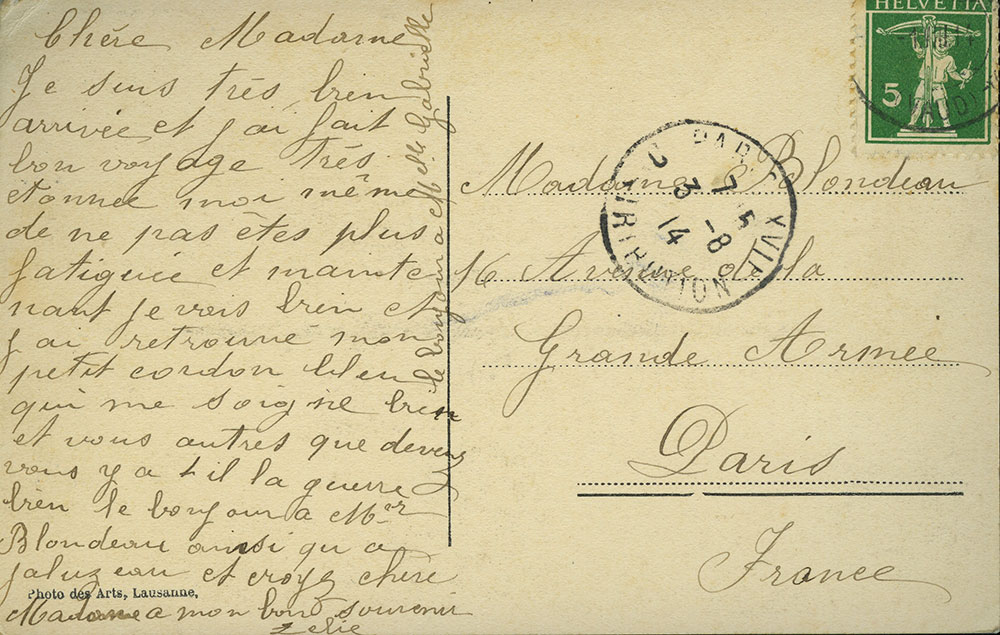 Chére Madame
Je suis trés bien
arrivée et j'ai fait
bon voyage trés
étonnée moi même
de ne pas êtes plus
fatiguée et mainte
nant je vois bien et
j'ai retrouve mon
petit cordon bleu
qui me soigne bien
et vous autres que devenez
vous y a t il la guerre
bien le bonjour a Mr
Blondeau ainsi qu a
jaluzeau et croyez chére
Madame a mon bons souvenir
Zelie
le bonjour a Melle Gabrielle
Photo des Arts, Lausanne.
HELVETIA
5
PARIS XVII
7 15
3 - 8
14
DISTRIBUTION
Madame Blondeau
16 Avenue de la
Grande Armée
Paris
France